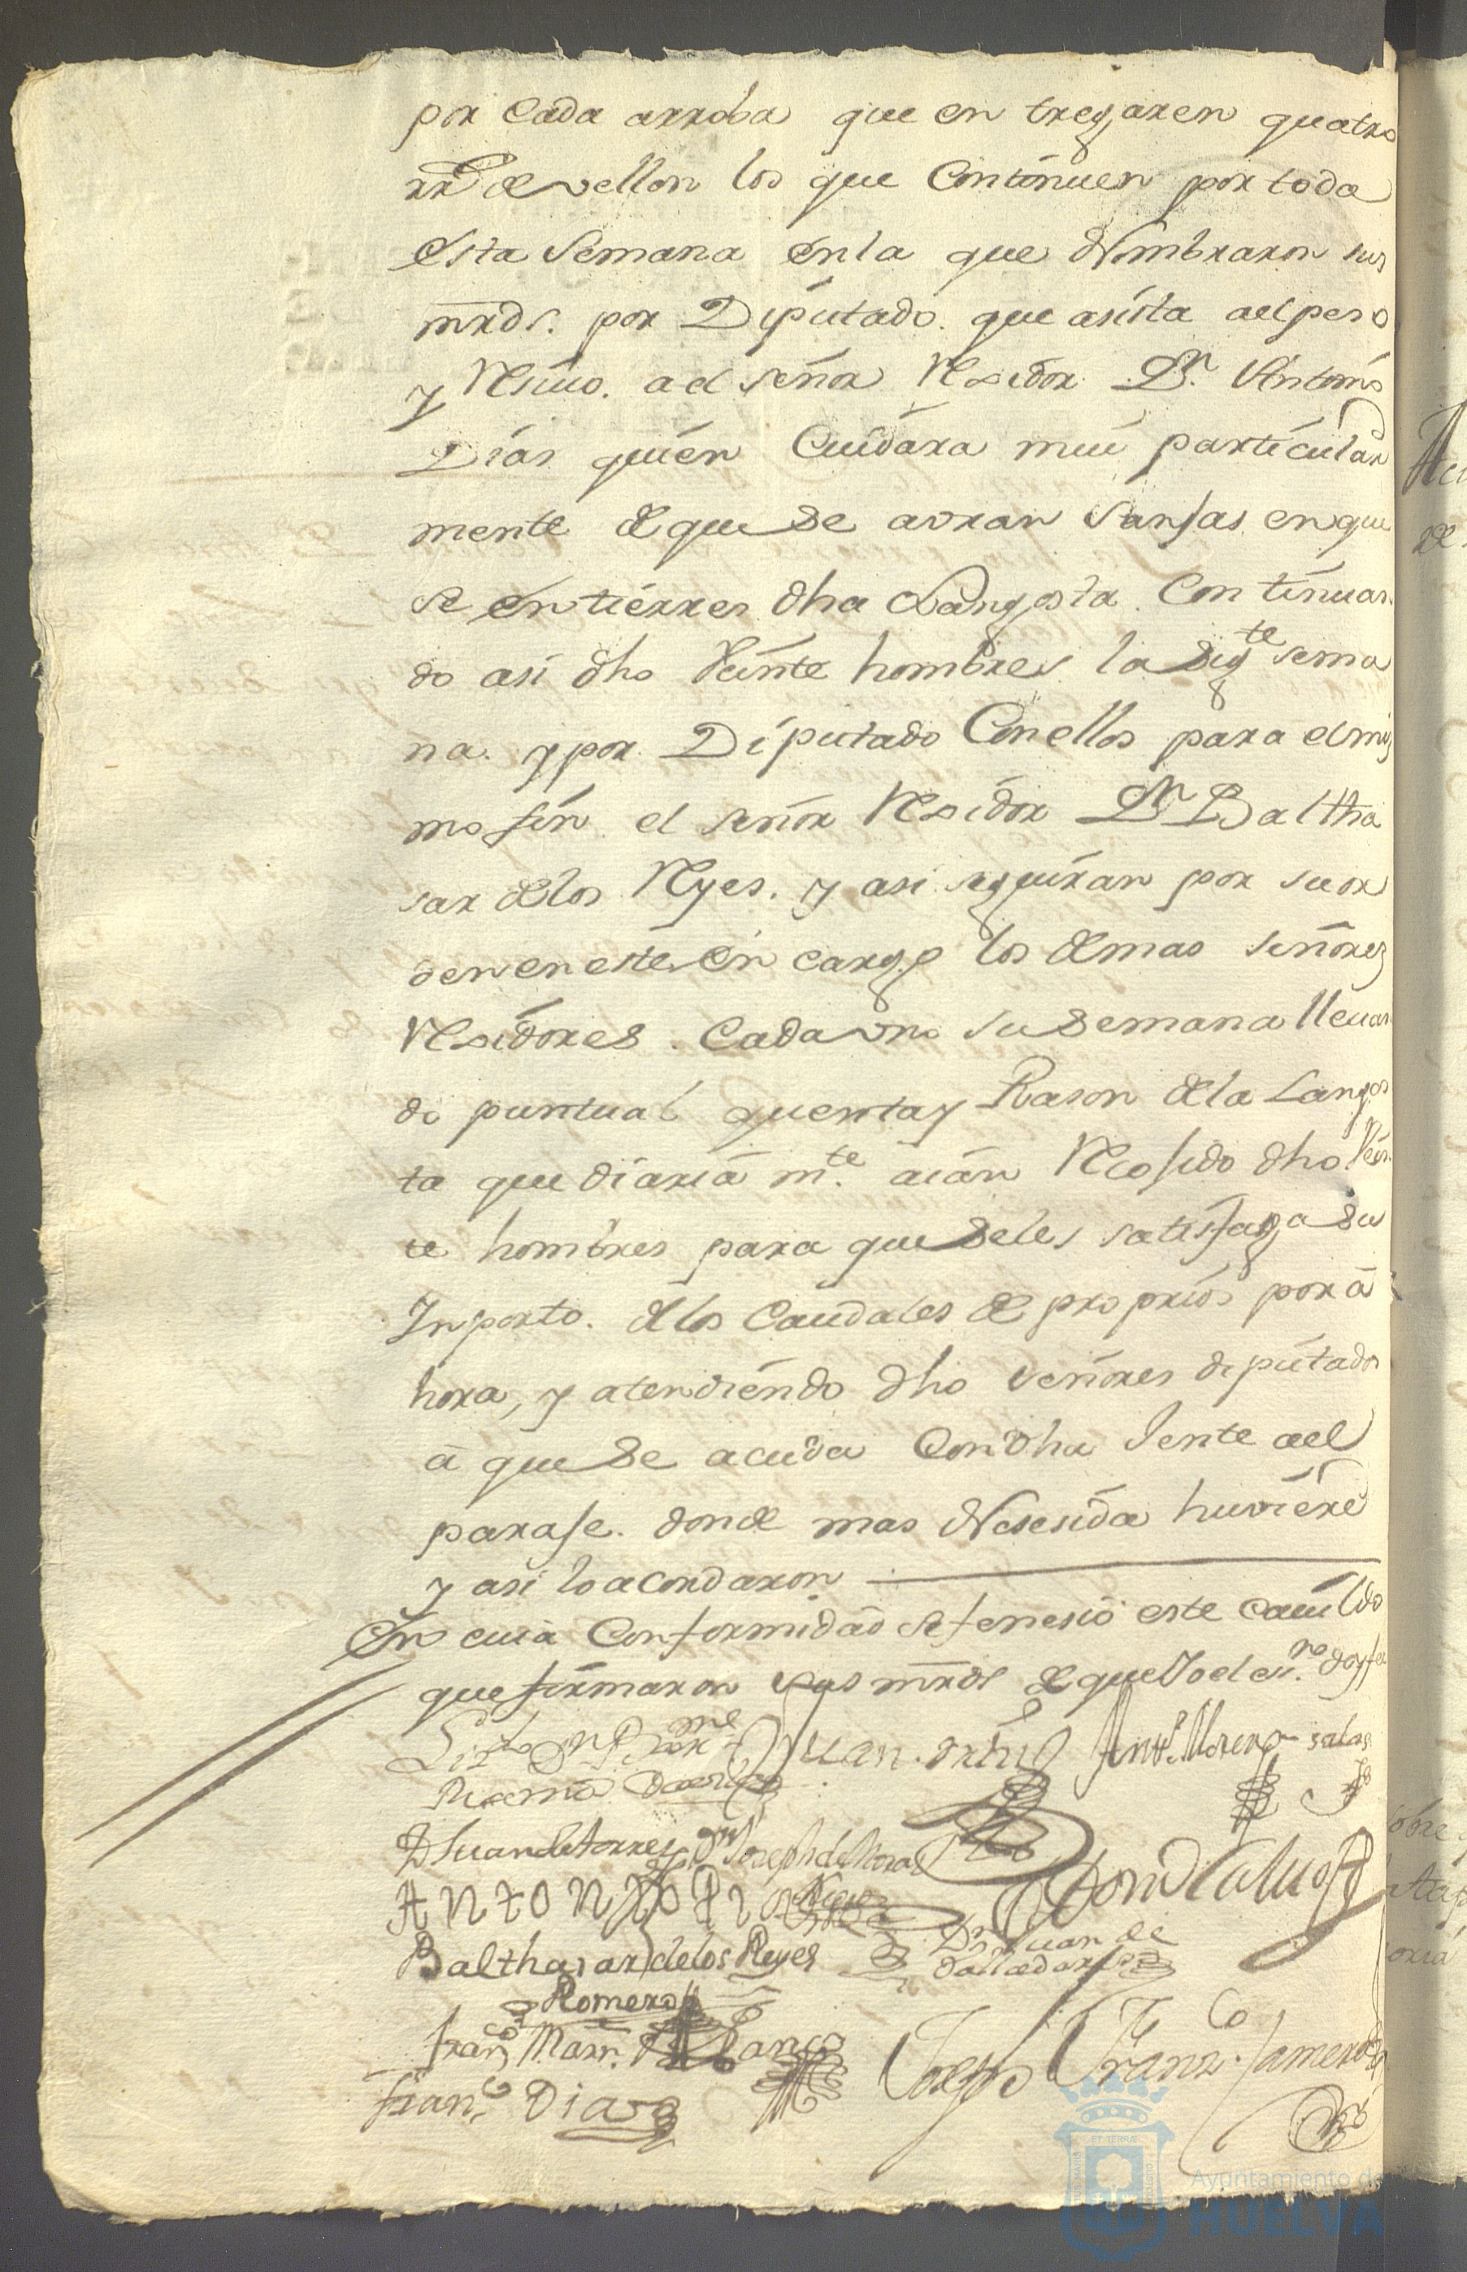 por cada arroba que en tregaren quatro
rr.s de vellon los que Continuen por toda
esta Semana en la que Nombraron sus
mrds. por Diputado. que asista ael peso
y Resiuo. a el señor Rexidor Dn. Antonio
Dias quien Cuidara mui particular
mente de que se avran Sanjas en que
se en tierren dha Langosta. Continuan
do asi dho Veinte hombres la sigte sema
na. y por Diputado Con ellos para el mis
mo fin el señor Rexidor Dn Baltha
sar de los Reyes. y asi seguiran por su or
den en este en cargo los demas señores
Rexidores. Cada vno su Semana lleuan
do puntual quenta y Rason de la Langos
ta que diariamte. aian Recojido dho Vein
te hombres para que se les satisfaga su
Inporto. de los Caudales de proprios por a
hora, y atendiendo dho señores diputados
a que se acuda Con dha Jente ael
paraje. donde mas Nesesida huviere
y asi lo acordaron
En cuia Conformidad se fenesio este cauildo
que firmaron sus mrds de que Yo el esno. doy fe
Lizdo Dn Barme Juan Ortis Anto. Moreno Salas
D Juan de Torres Dn Joseph de Mora
Antonio Dias
Balthasar de los Reyes Dn Juan de
Romero
Franco Marn. Blanco
Franco Dias
Ayuntamiento de
HUELVA